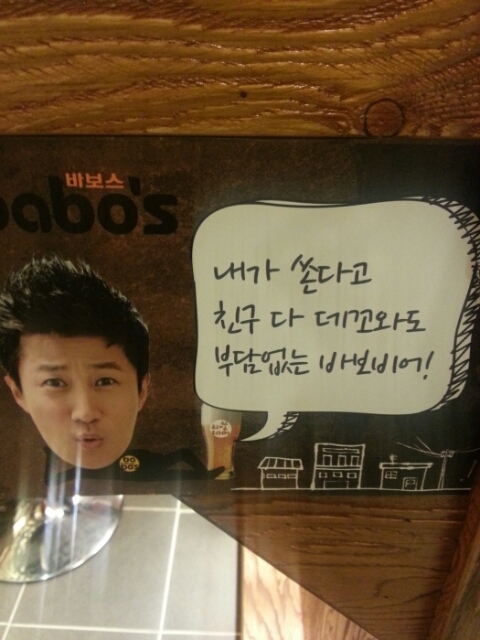 바보스
babo's
내가 쏜다고
친구 다 데꼬와도
부담없는 바보비어!